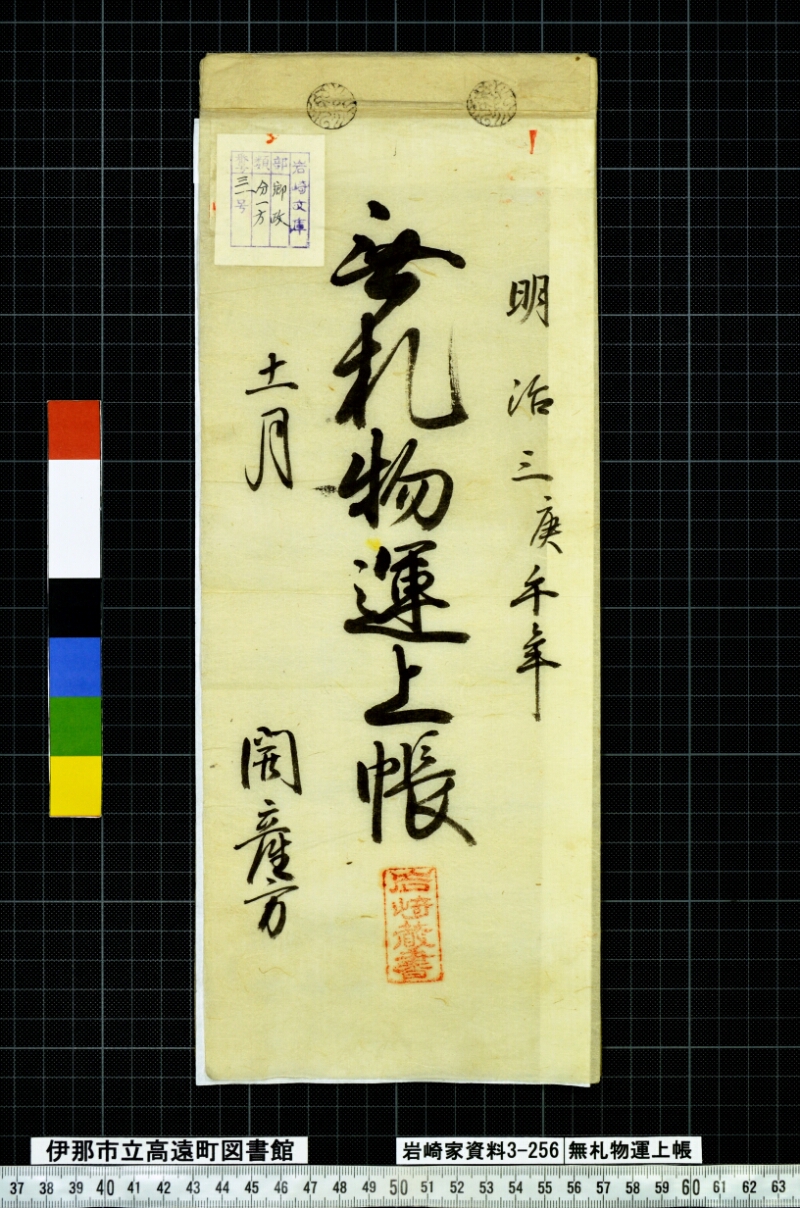 明治三庚午年
無札物運上帳
十一月
開産方
岩崎蔵書
岩崎文庫
部 郷政
分一方
三一号
伊那市立高遠町図書館
岩崎家資料3-256
無札物運上帳
37 38 39 40 41 42 43 44 45 46 47 48 49 50 51 52 53 54 55 56 57 58 59 60 61 62 63